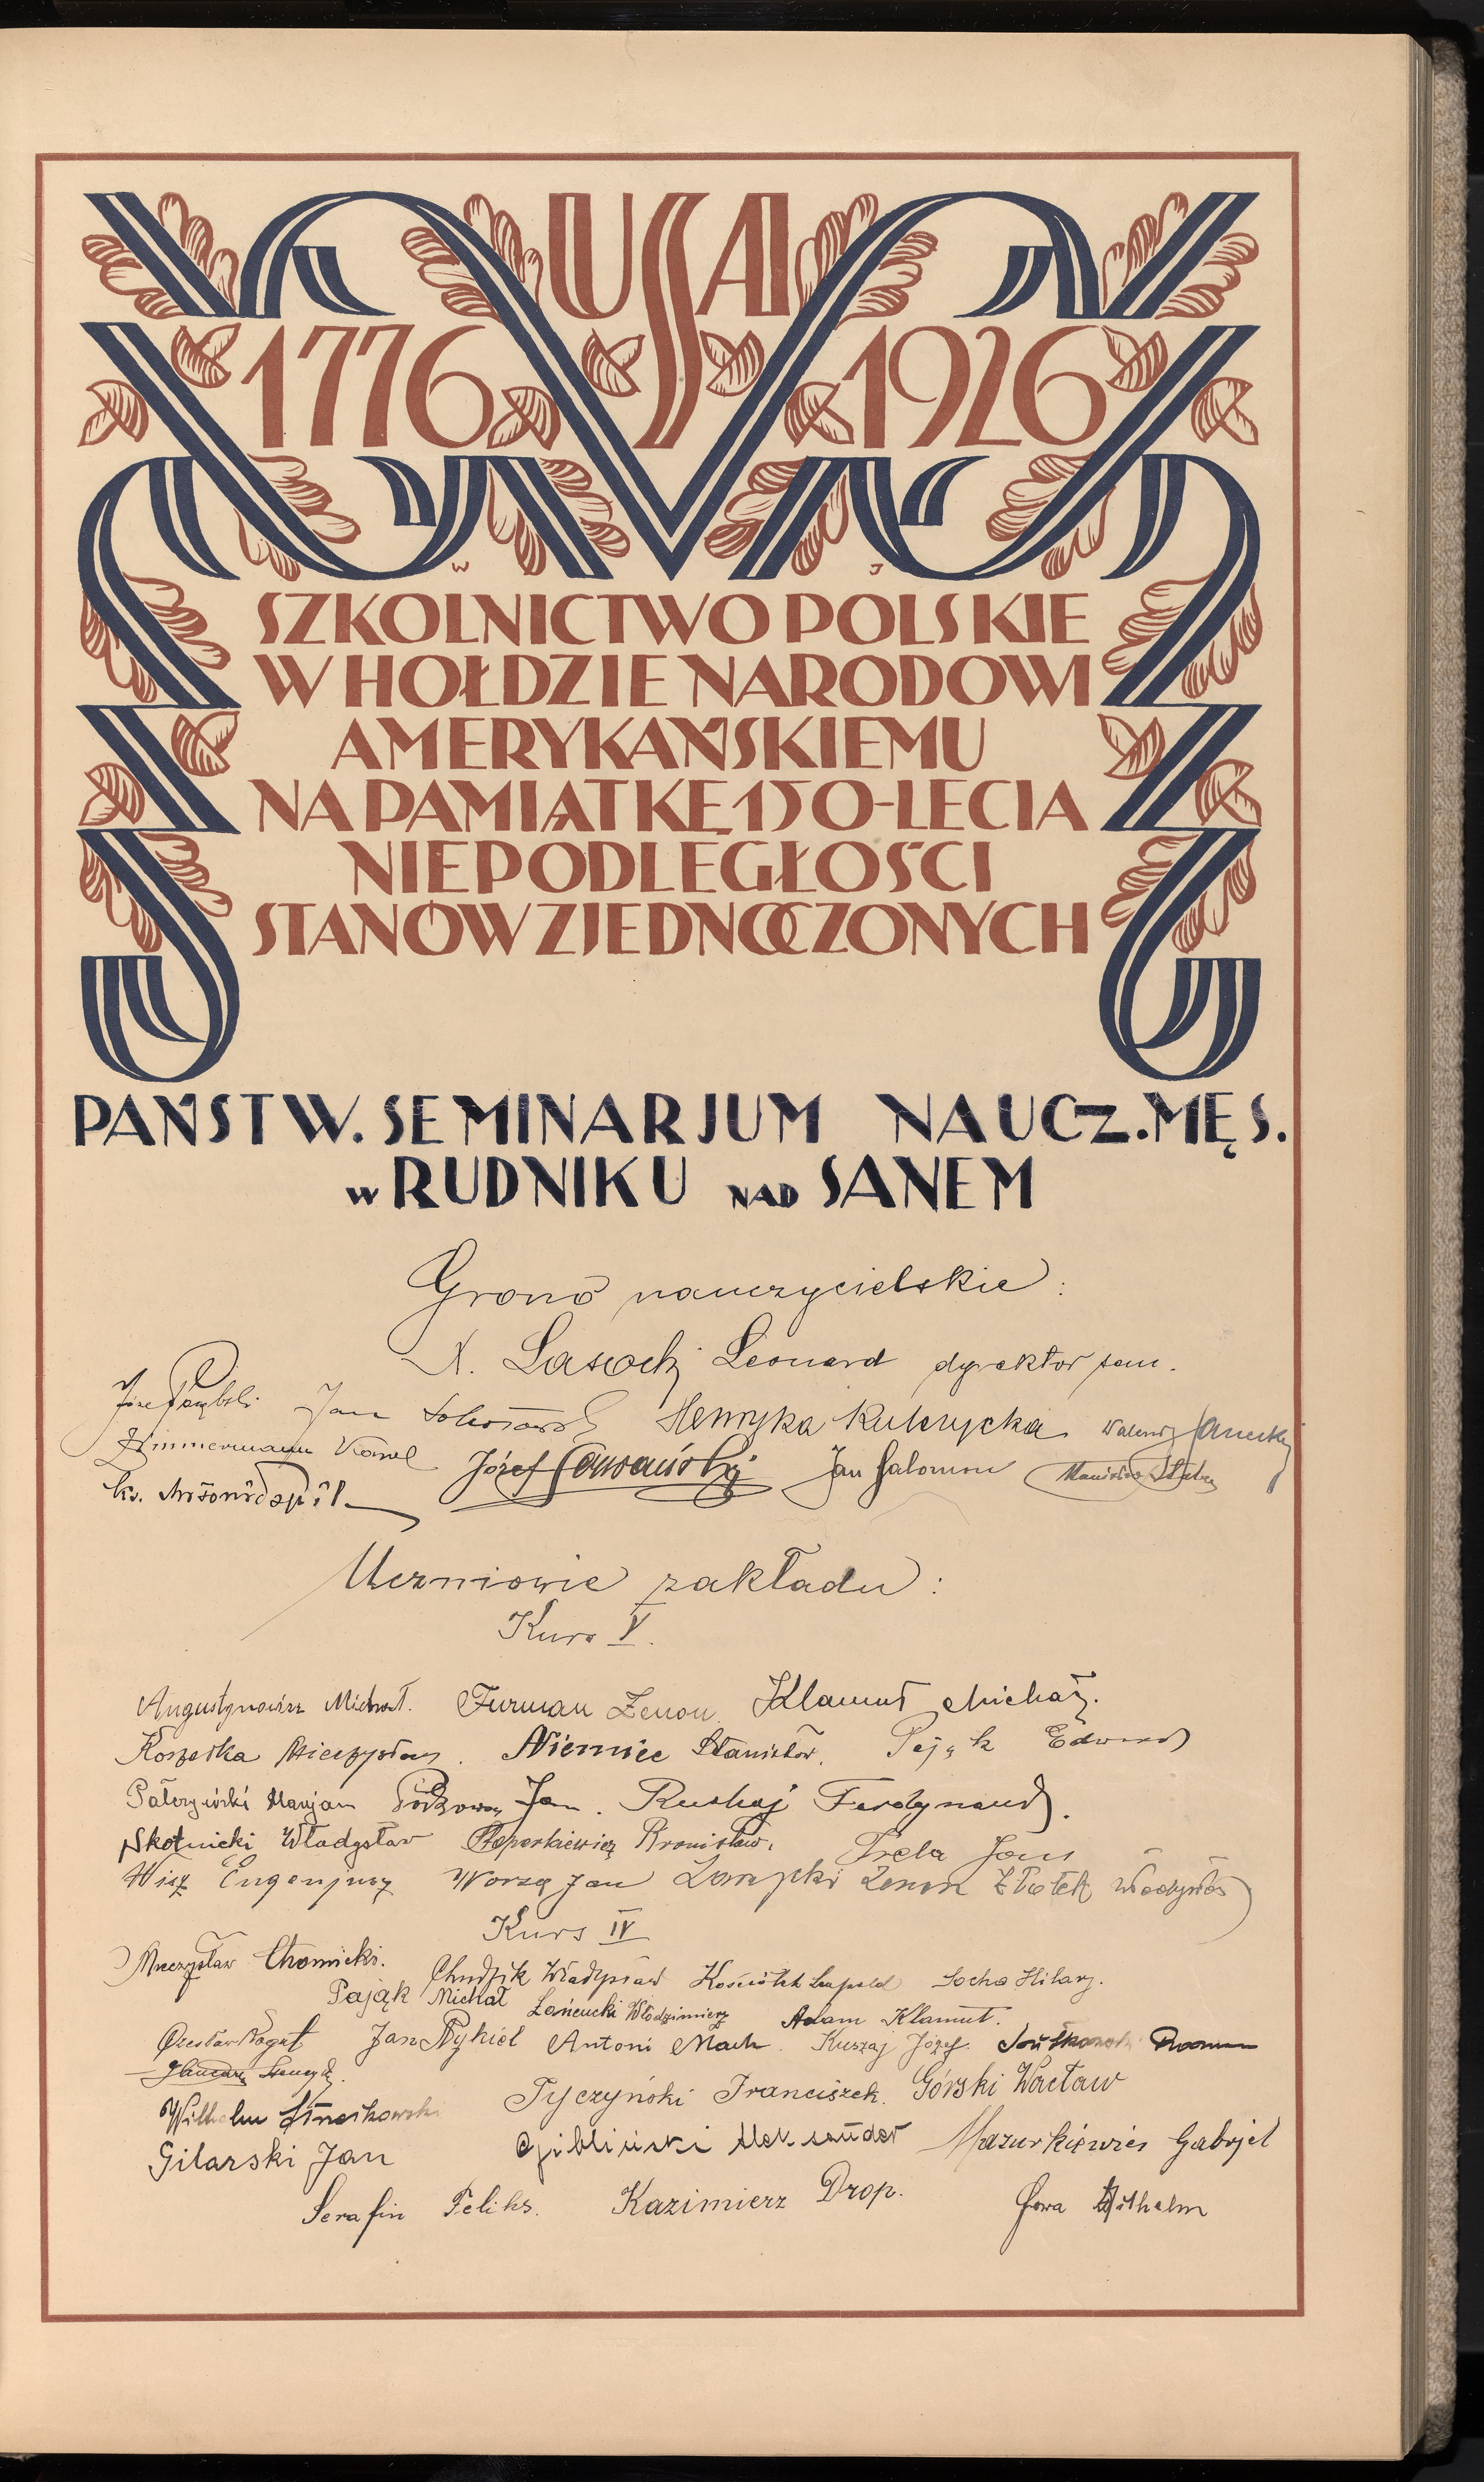 USA
1776 1926
W J
SZKOLNICTWO POLSKIE
W HOŁDZIE NARODOWI
AMERYKAŃSKIEMU
NA PAMIĄTKĘ 150-LECIA
NIEPODLEGŁOŚCI
STANÓW ZJEDNOCZONYCH
PAŃSTW. SEMINARJUM NAUCZ. MĘS.
W RUDNIKU NAD SANEM
Grono nauczycielskie:
X. Lasocki Leonard dyrektor sem.
Józef Jan Henryka Kulczycka
Zimmermann Karol Józef Jan Salomon Stanisław
ks.
Uczniowie zakładu:
Kurs V.
Augustynowicz Michał. Furman Zenon. Klamut Michał.
Koszałka Mieczysław. Niemiec Stanisław. Pająk Edward
Marjan Jan. Ruskaj Ferdynand.
Skotnicki Władysław Toporkiewicz Bronisław. Trela Jan
Wisz Eugenjusz Worsa Jan Zenon Złotek Władysław
Kurs IV
Mieczysław Chomicki.
Chudzik Władysław Kościółek Leopold Socha Hilary.
Pająk Michał Łańcucki Włodzimierz Adam Klamut.
Czesław Nagut Jan Nykiel Antoni Mach. Kuszaj Józef. Roman
Wilhelm Tyczyński Franciszek. Górski Wacław
Gilarski Jan Aleksander Mazurkiewicz Gabrjel
Serafin Feliks. Kazimierz Drop. Sowa Wilhelm